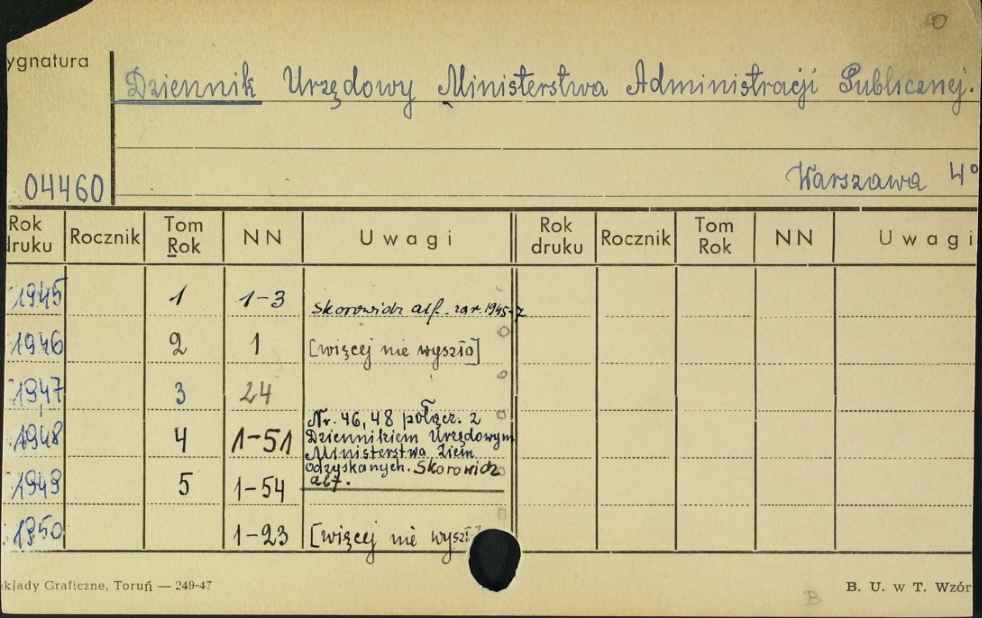 ygnatura
Dziennik Urzędowy Ministerstwa Administracji Publicznej.
04460
Warszawa 4°
Rok druku Rocznik Tom Rok NN Uwagi Rok druku Rocznik Tom Rok NN Uwagi
1945 1 1-3 Skorowidz alf. za r. 1945-7
1946 2 1 [więcej nie wyszło]
1947 3 24
1948 4 1-51 Nr. 46, 48 połącz. z
Dziennikiem Urzędowym
Ministerstwa Ziem
odzyskanych. Skorowidz
alf.
1949 5 1-54
1950 1-23 [więcej nie wyszł
kłady Graficzne, Toruń — 249-47
B. U. w T. Wzór
B